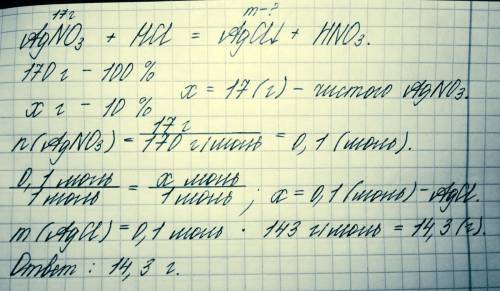 17г m-?
AgNO₃ + HCl = AgCl↓ + HNO₃.
170 г - 100 %
x г - 10 % x = 17 (г) - чистого AgNO₃.
n(AgNO₃) = 17 г / 170 г/моль = 0,1 (моль).
0,1 моль / 1 моль = x моль / 1 моль ; x = 0,1 (моль) - AgCl.
m (AgCl) = 0,1 моль · 143 г/моль = 14,3 (г).
Ответ : 14,3 г.